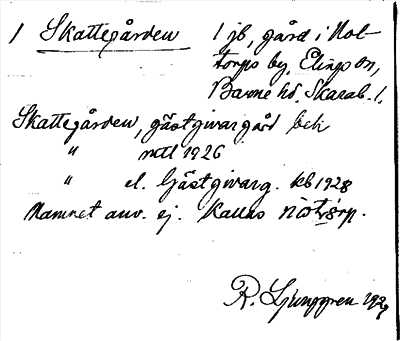 1 Skattegården 1 jb, gård i Nol-
torps by, Eling sn,
Barne hd. Skarab. l.
Skattegården, gästgivargård bek
" mtl 1926
" el. Gästgivarg. kb 1928
Namnet anv. ej. Kallas
R. Ljunggren 1929